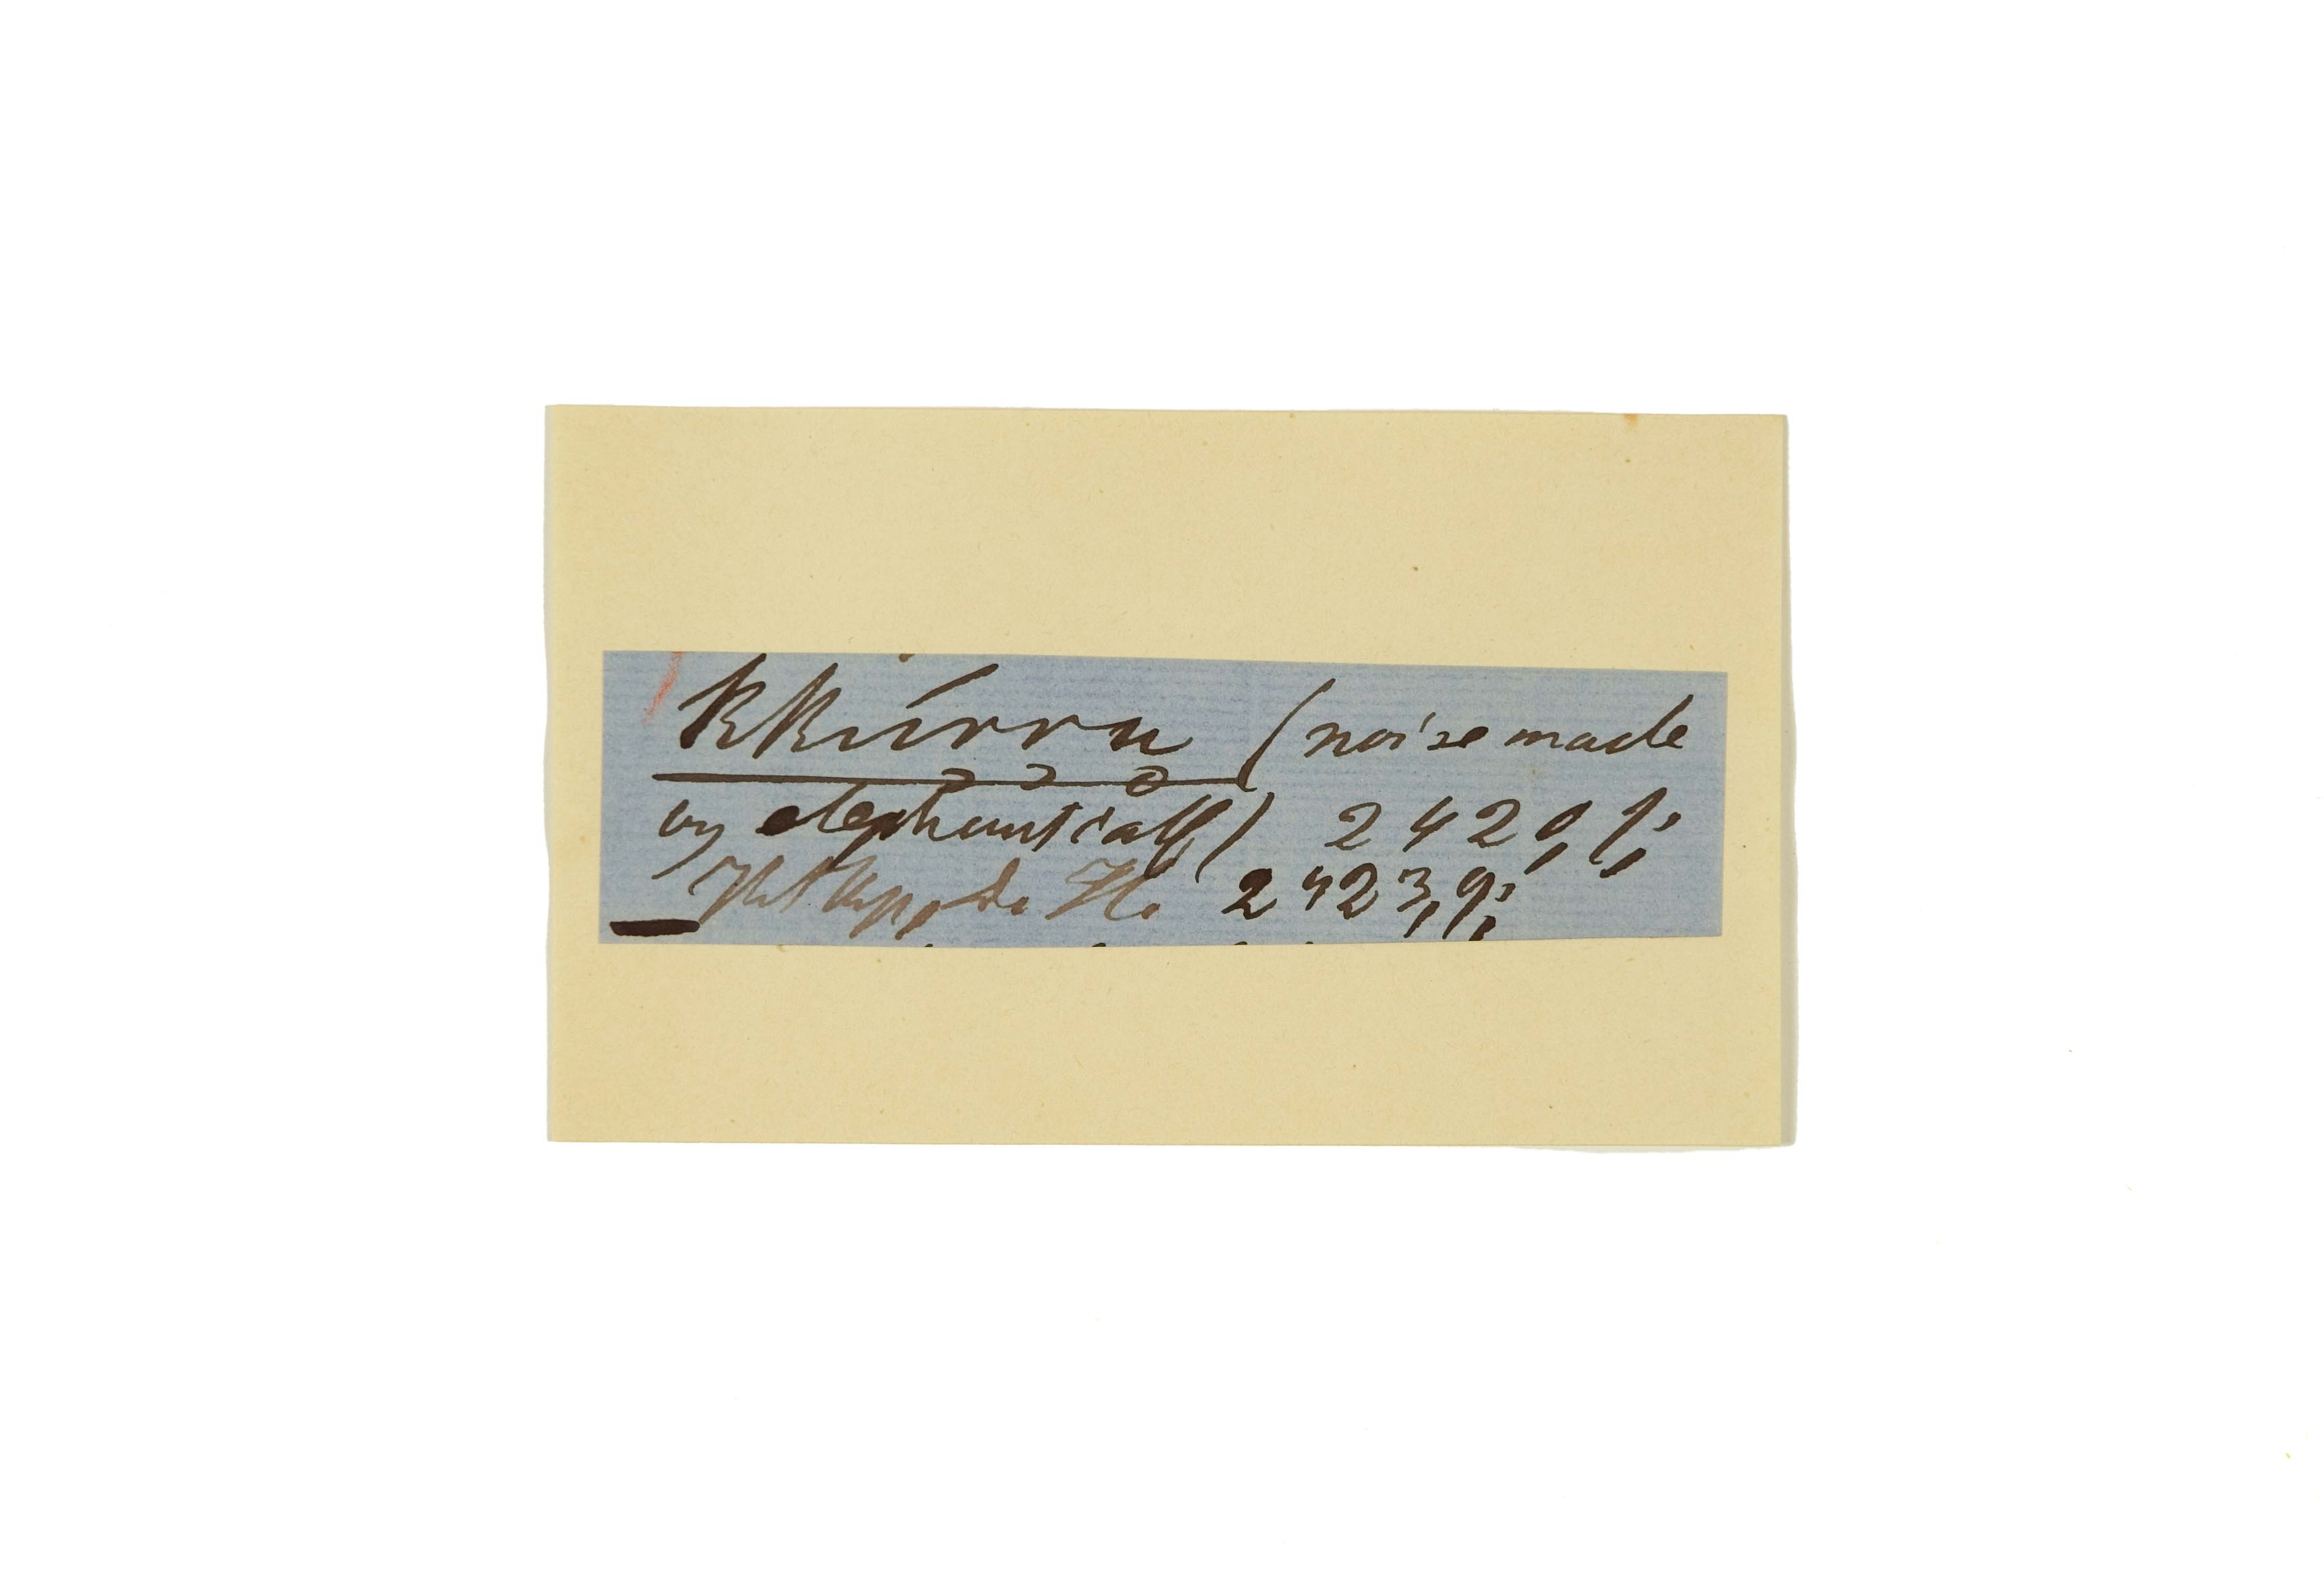 kkúrru (noise made
by elephant calf) 2420, 1;
2423, 9;